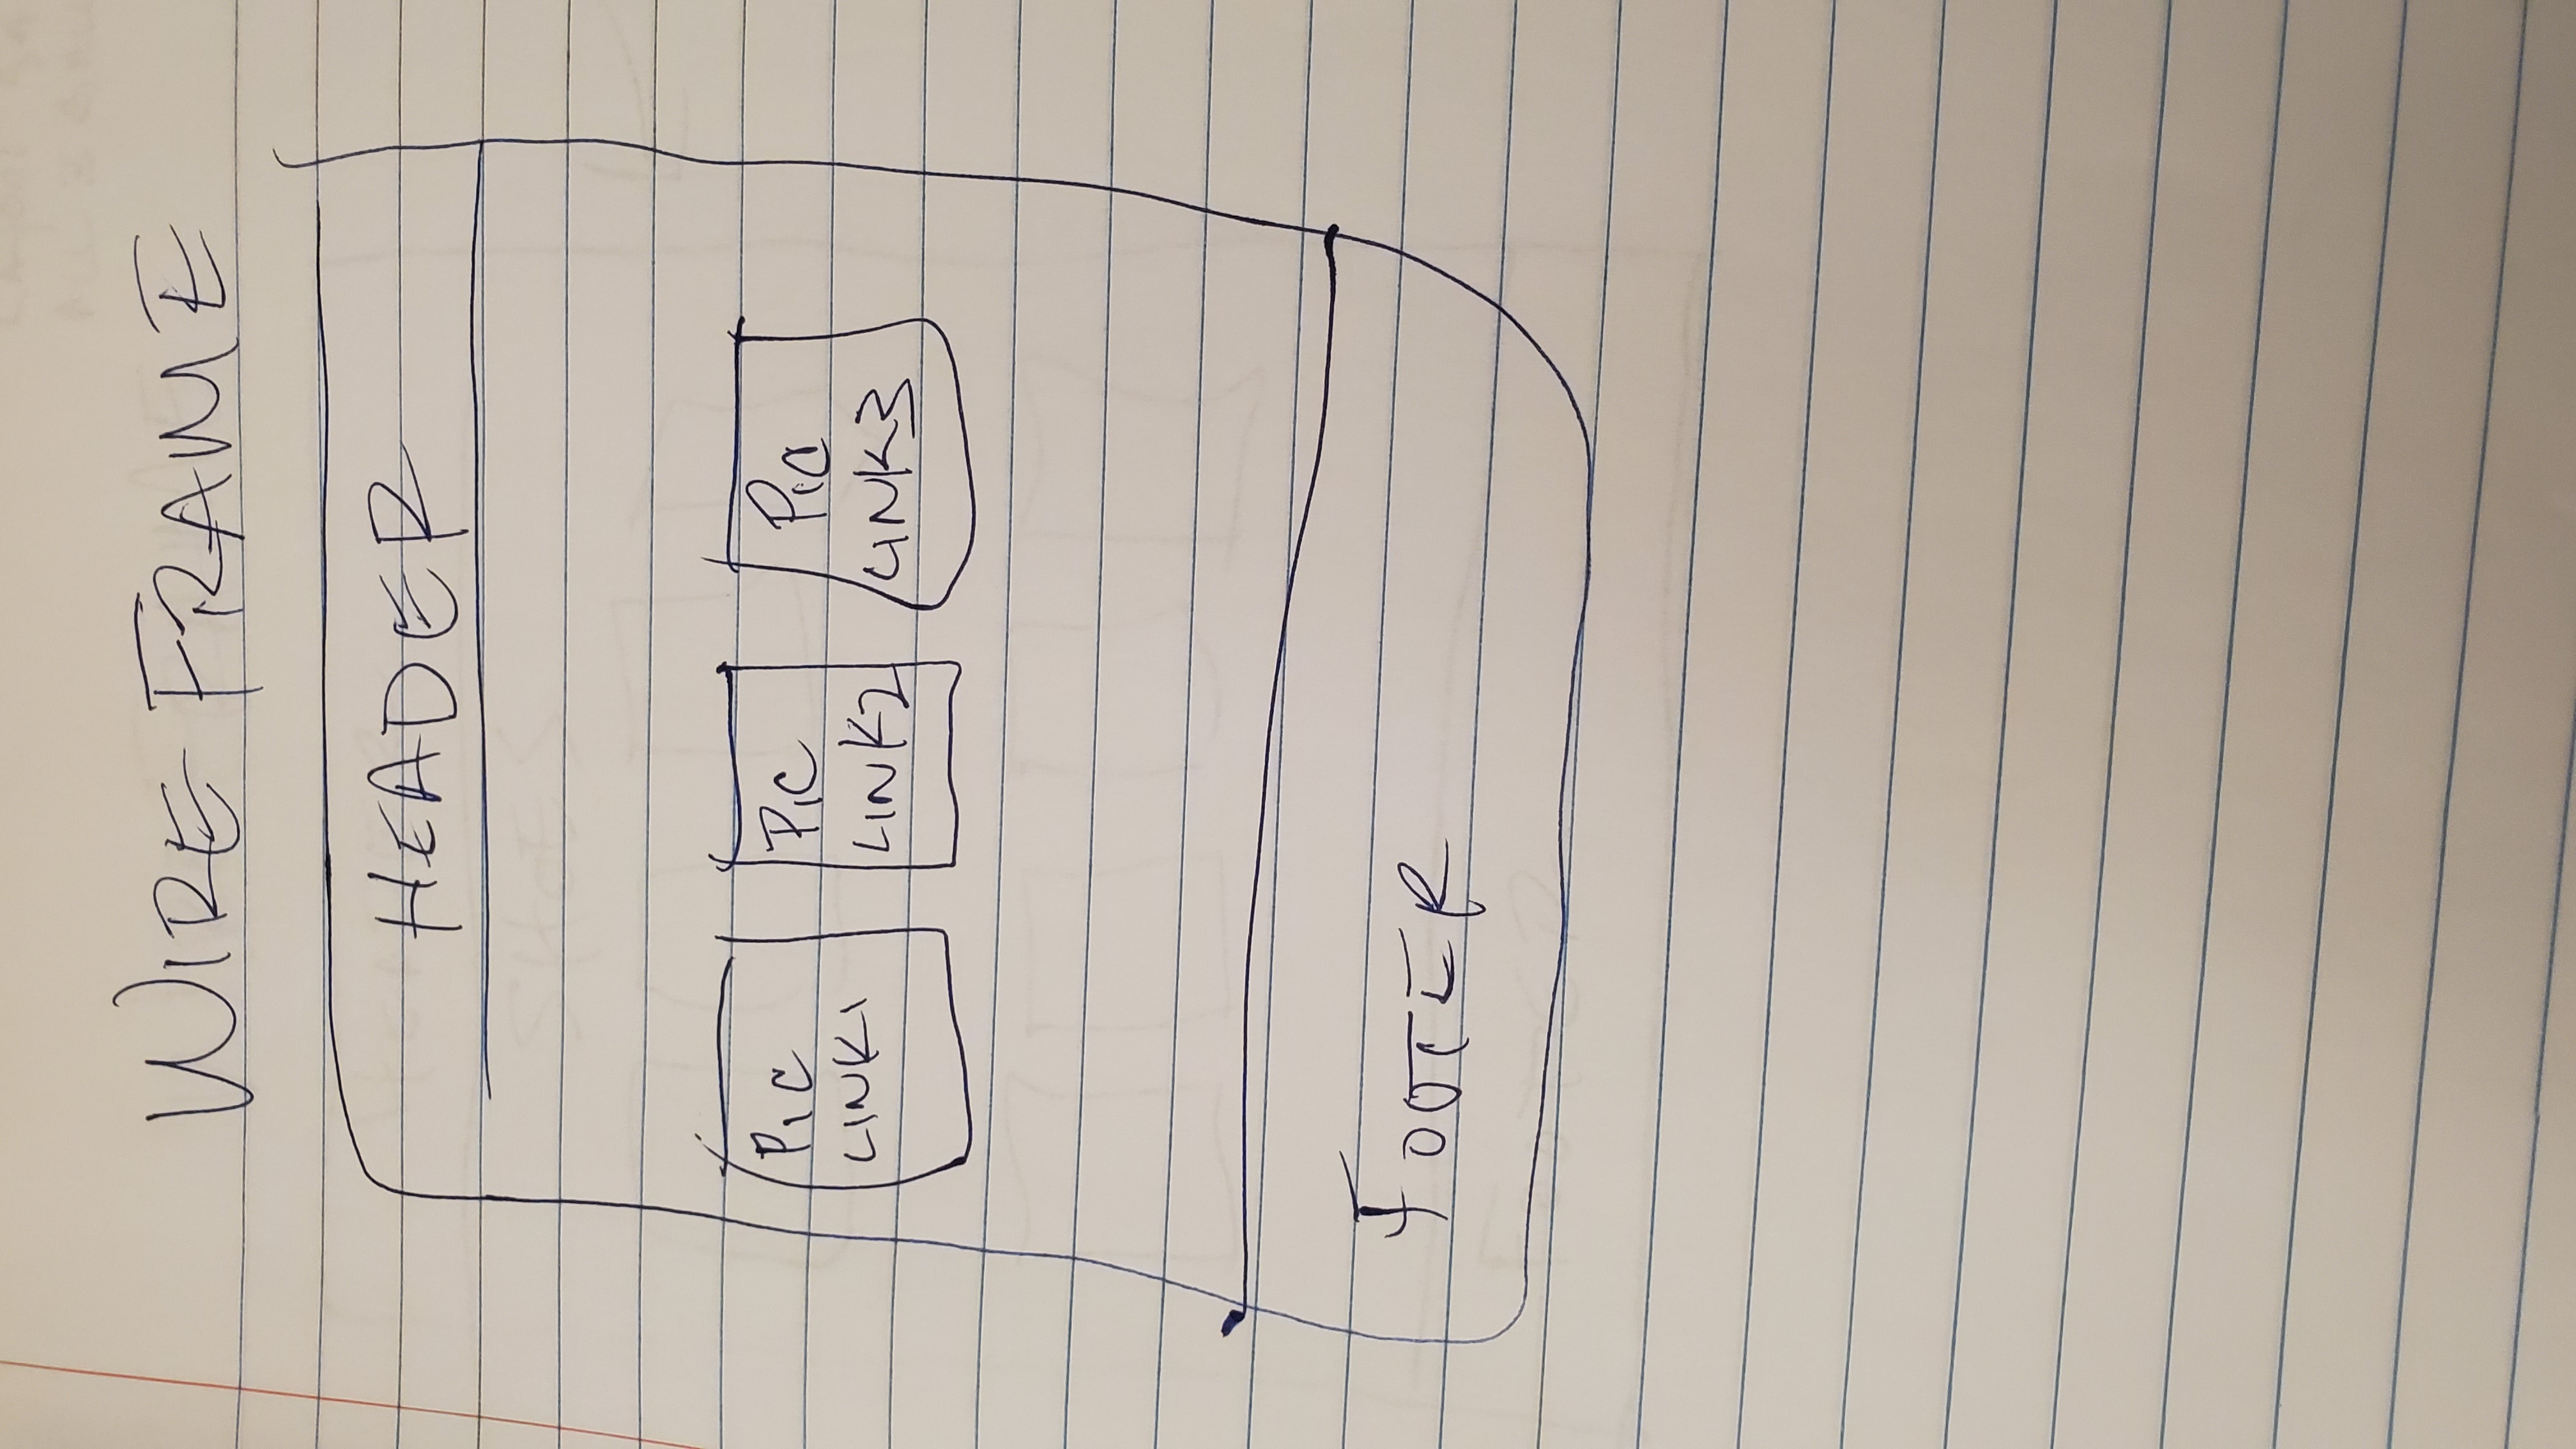 WIRE FRAME
HEADER
PIC PIC PIC
LINK1 LINK2 LINK3
FOOTER